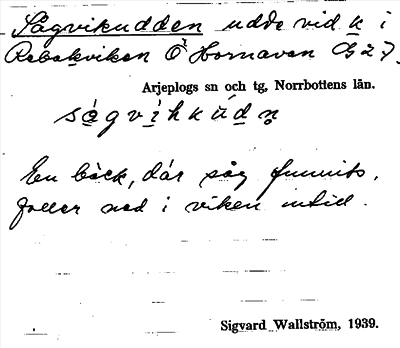 Sågvikudden udde vid k i
Rebakviken Ö Hornaven G 27.
Arjeplogs sn och tg, Norrbottens län.
sågvikkúdn̥
En bäck, där såg funnits,
faller ned i viken intill.
Sigvard Wallström, 1939.